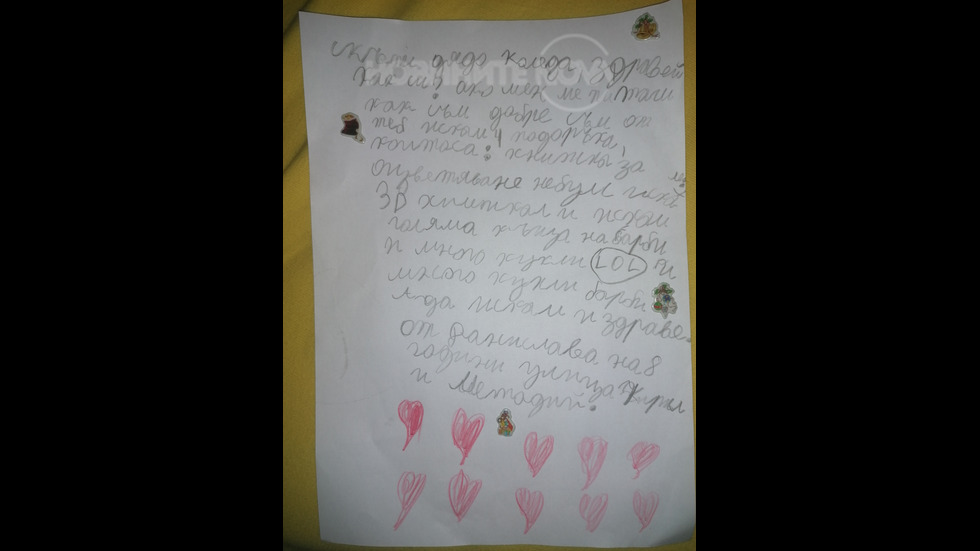 скъпи дядо коледа здравей
как си? ако мен ме питаш
как съм добре съм от
теб искам 4 подаръка,
книжкы за
оцветяване небули искам
3D химикал и искам
голяма къща на барби
и много кукли LOL и
много кукли барби
и да искам и здраве.
от Данислава на 8
години улица Кирил
и Методий.